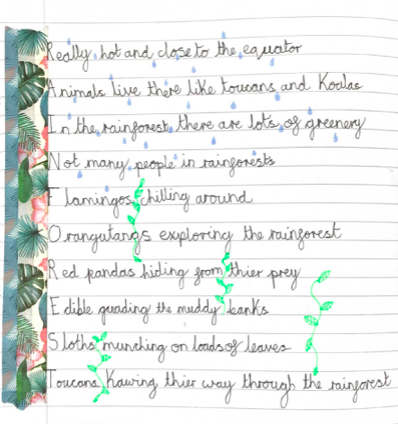 Really hot and close to the equator
Animals live there like toucans and Koalas
In the rainforest, there are lots of greenery
Not many people in rainforests
Flamingos chilling around
Orangutangs exploring the rainforest
Red pandas hiding from thier prey
Edible guading the muddy banks
Sloths munching on loads of leaves
Toucans Kawing thier way through the rainforest